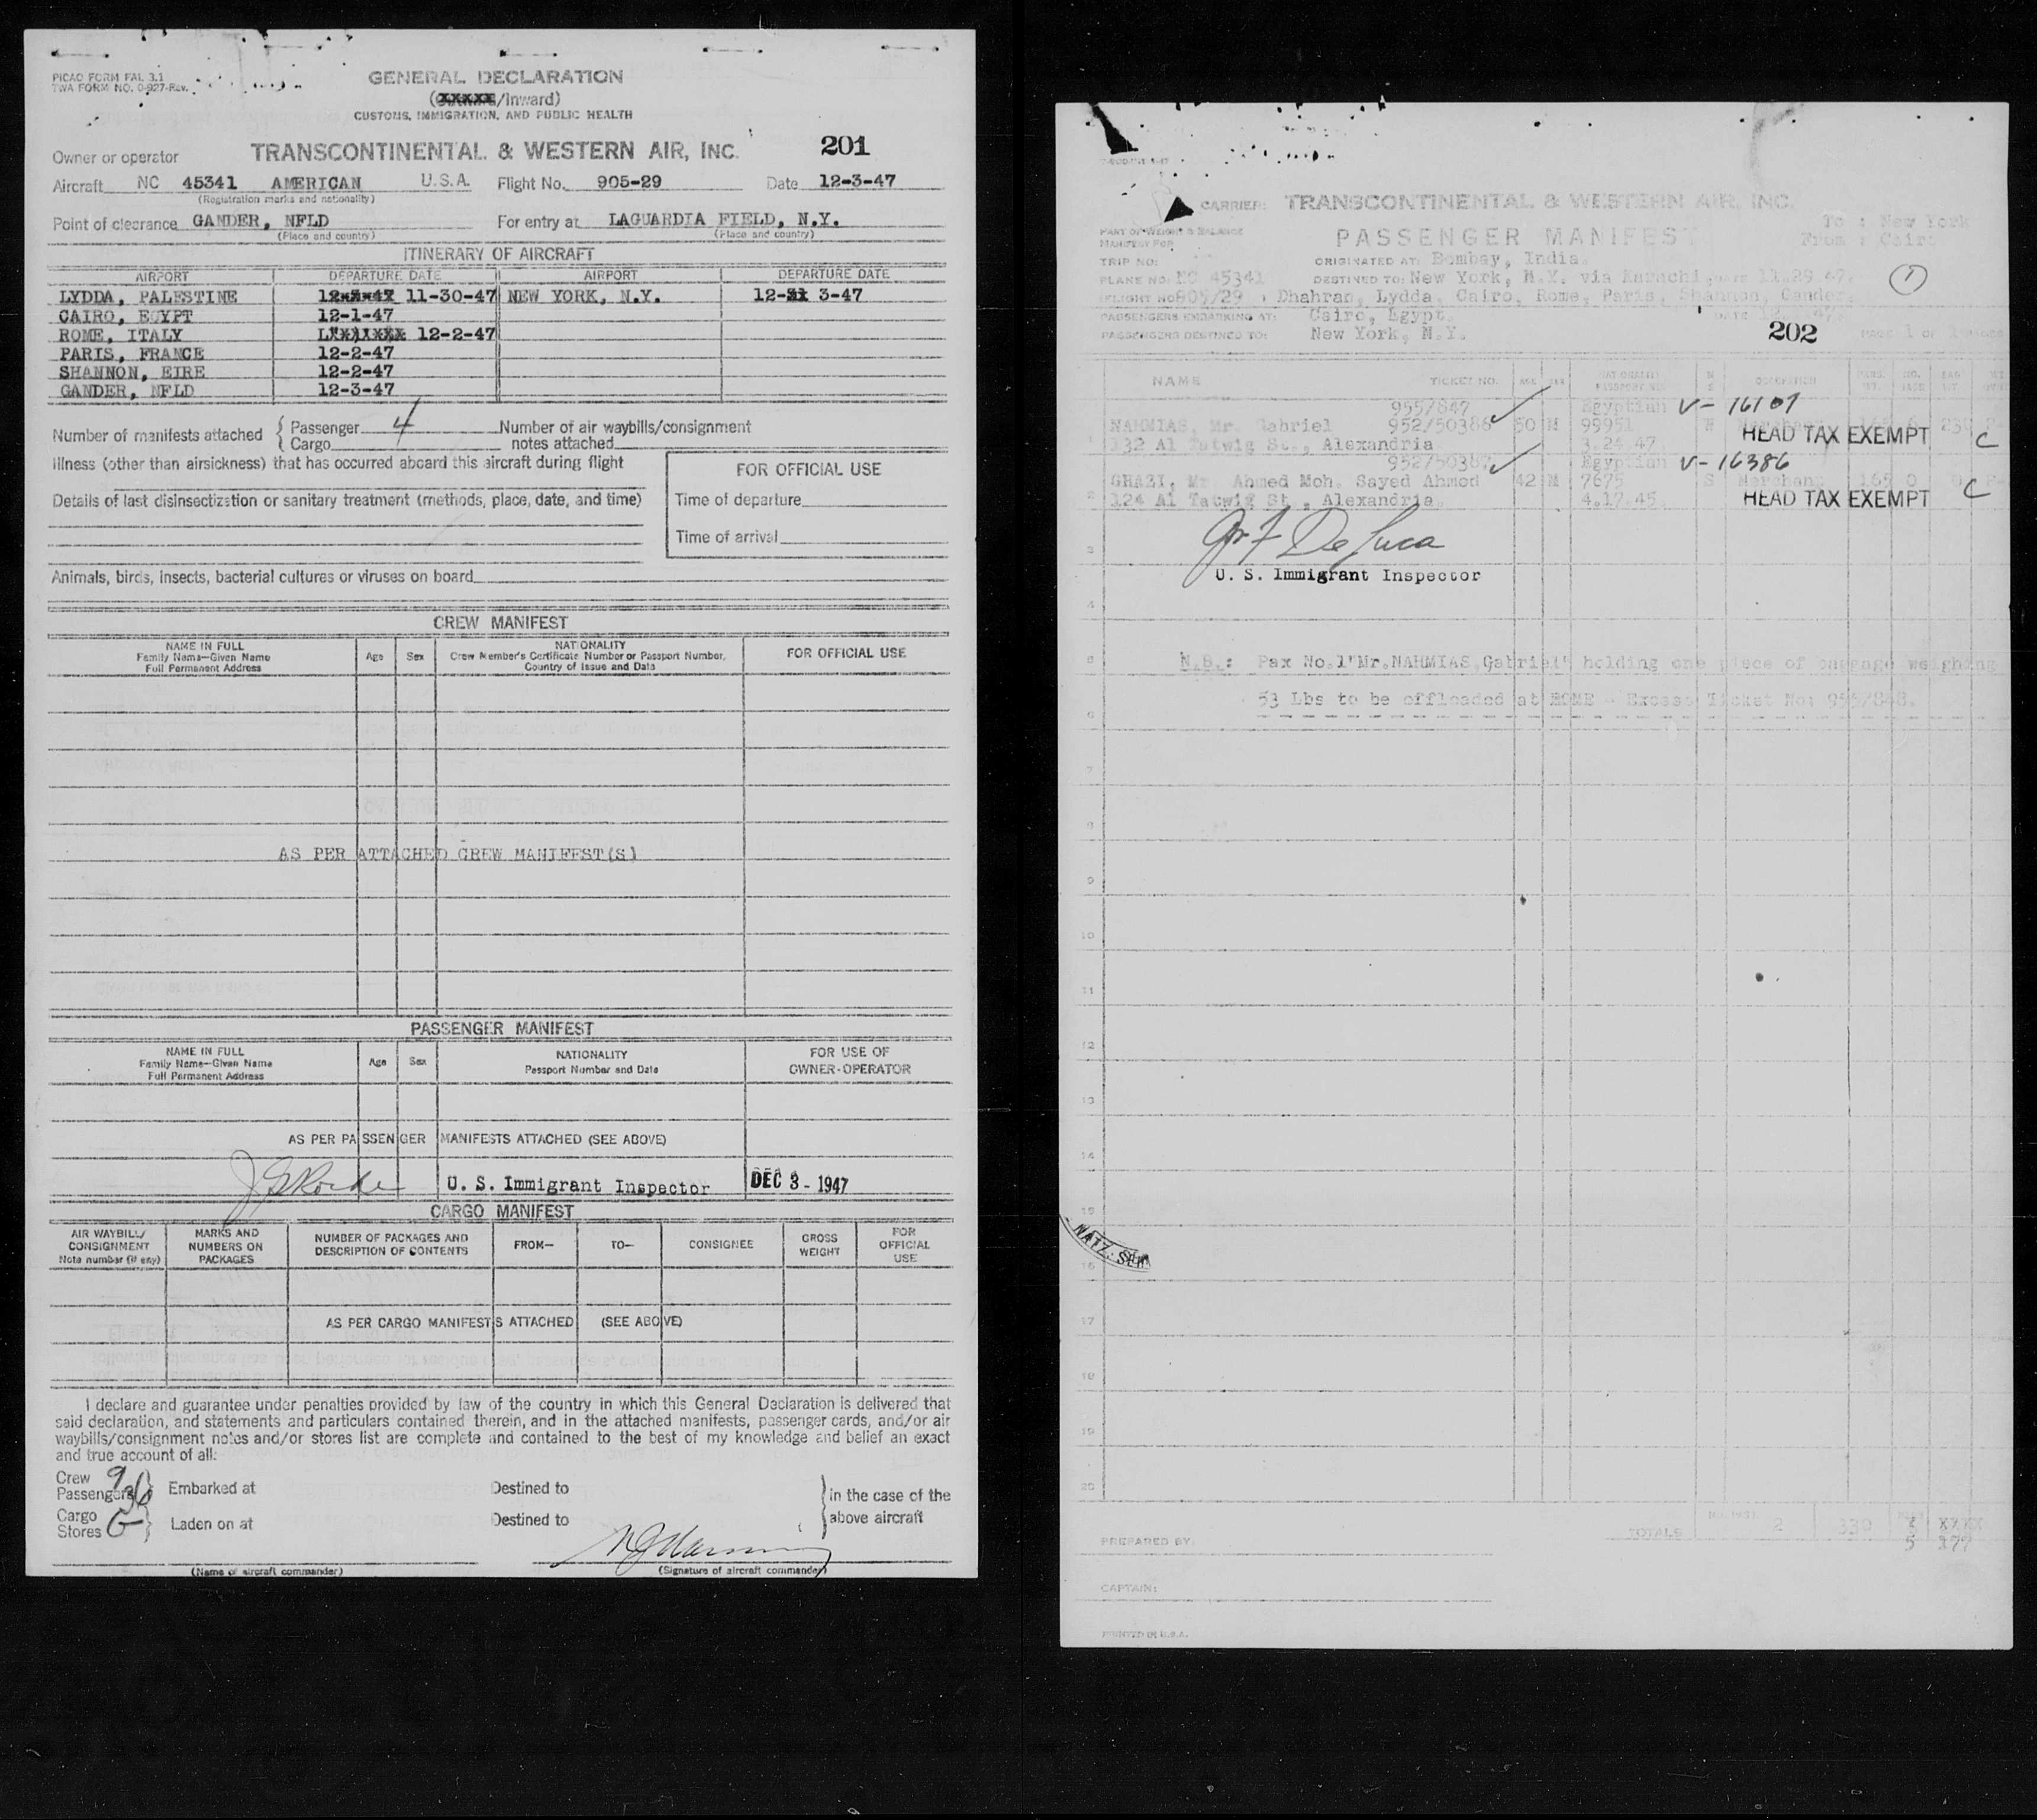 PICAO FORM FAL 3.1
TWA FORM NO. 0-927-Rev.
GENERAL DECLARATION
(xxxxx/Inward)
CUSTOMS, IMMIGRATION, AND PUBLIC HEALTH
Owner or operator TRANSCONTINENTAL & WESTERN AIR, INC. 201
Aircraft NC 45341 AMERICAN U.S.A. Flight No. 905-29 Date 12-3-47
(Registration marks and nationality)
Point of clearance GANDER, NFLD For entry at LAGUARDIA FIELD, N.Y.
(Place and country) (Place and country)
ITINERARY OF AIRCRAFT
AIRPORT DEPARTURE DATE AIRPORT DEPARTURE DATE
LYDDA, PALESTINE 11-30-47 NEW YORK, N.Y. 12- 3-47
CAIRO, EGYPT 12-1-47
ROME, ITALY 12-2-47
PARIS, FRANCE 12-2-47
SHANNON, EIRE 12-2-47
GANDER, NFLD 12-3-47
Number of manifests attached { Passenger 4 Number of air waybills/consignment
{ Cargo notes attached
Illness (other than airsickness) that has occurred aboard this aircraft during flight
FOR OFFICIAL USE
Details of last disinsectization or sanitary treatment (methods, place, date, and time)
Time of departure
Time of arrival
Animals, birds, insects, bacterial cultures or viruses on board
CREW MANIFEST
NAME IN FULL
Family Name—Given Name
Full Permanent Address
Age Sex
NATIONALITY
Crew Member's Certificate Number or Passport Number,
Country of Issue and Date
FOR OFFICIAL USE
AS PER ATTACHED CREW MANIFEST(S)
PASSENGER MANIFEST
NAME IN FULL
Family Name—Given Name
Full Permanent Address
Age Sex
NATIONALITY
Passport Number and Date
FOR USE OF
OWNER-OPERATOR
AS PER PASSENGER MANIFESTS ATTACHED (SEE ABOVE)
U. S. Immigrant Inspector DEC 3 - 1947
CARGO MANIFEST
AIR WAYBILL/
CONSIGNMENT
Note number (if any)
MARKS AND
NUMBERS ON
PACKAGES
NUMBER OF PACKAGES AND
DESCRIPTION OF CONTENTS
FROM—
TO—
CONSIGNEE
GROSS
WEIGHT
FOR
OFFICIAL
USE
AS PER CARGO MANIFESTS ATTACHED (SEE ABOVE)
I declare and guarantee under penalties provided by law of the country in which this General Declaration is delivered that
said declaration, and statements and particulars contained therein, and in the attached manifests, passenger cards, and/or air
waybills/consignment notes and/or stores list are complete and contained to the best of my knowledge and belief an exact
and true account of all:
Crew 9
Passengers 36 } Embarked at Destined to } in the case of the
Cargo
Stores } Laden on at Destined to above aircraft
(Name of aircraft commander) (Signature of aircraft commander)
CARRIER: TRANSCONTINENTAL & WESTERN AIR, INC.
To : New York
PART OF WEIGHT & BALANCE
MANIFEST FOR
PASSENGER MANIFEST
From : Cairo
TRIP NO: ORIGINATED AT: Bombay, India.
PLANE NO: NC 45341 DESTINED TO: New York, N.Y. via Karachi, DATE 11.29.47. 1
FLIGHT NO 905/29 Dhahran, Lydda, Cairo, Rome, Paris, Shannon, Gander.
PASSENGERS EMBARKING AT: Cairo, Egypt.
PASSENGERS DESTINED TO: New York, N.Y. 202 PAGE 1 OF 1
NAME TICKET NO. AGE SEX NATIONALITY PASSPORT NO. OCCUPATION
955/847 Egyptian V-16107
1 NAHMIAS, Mr. Gabriel 952/50386 50 M 99951
132 Al Tatwig St., Alexandria 3.24.47 HEAD TAX EXEMPT C
Egyptian V-16386
GHAZI, Mr. Ahmed Moh. Sayed Ahmed 42 M 7675 S Merchant 165 0
2 124 Al Tatwig St., Alexandria. 4.17.45. HEAD TAX EXEMPT C
3 Jn F De Luca
U. S. Immigrant Inspector
4
5 N.B.: Pax No.1"Mr.NAHMIAS,Gabriel" holding one piece of baggage weighing
53 Lbs to be offloaded at ROME - Excess Ticket No: 955/848.
6
7
8
9
10
11
12
13
14
15
NATZ. SER
16
17
18
19
20
TOTALS 2 330
PREPARED BY: 5 377
CAPTAIN:
PRINTED IN U.S.A.